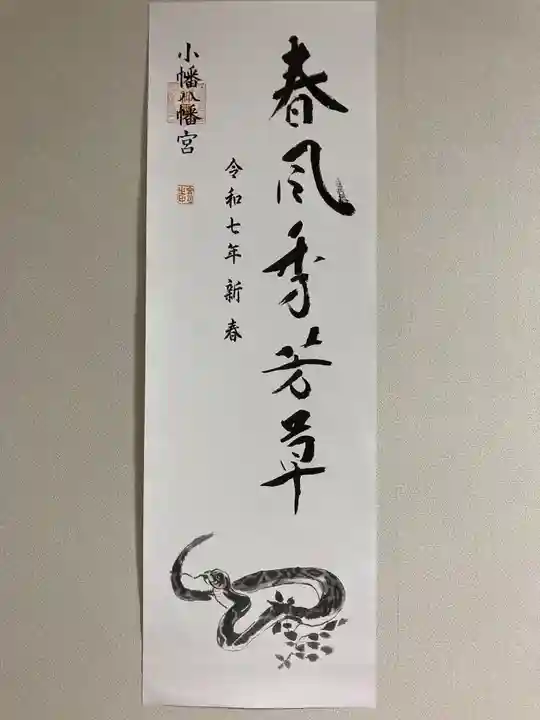 春風季芳草
令和七年新春
小幡八幡宮